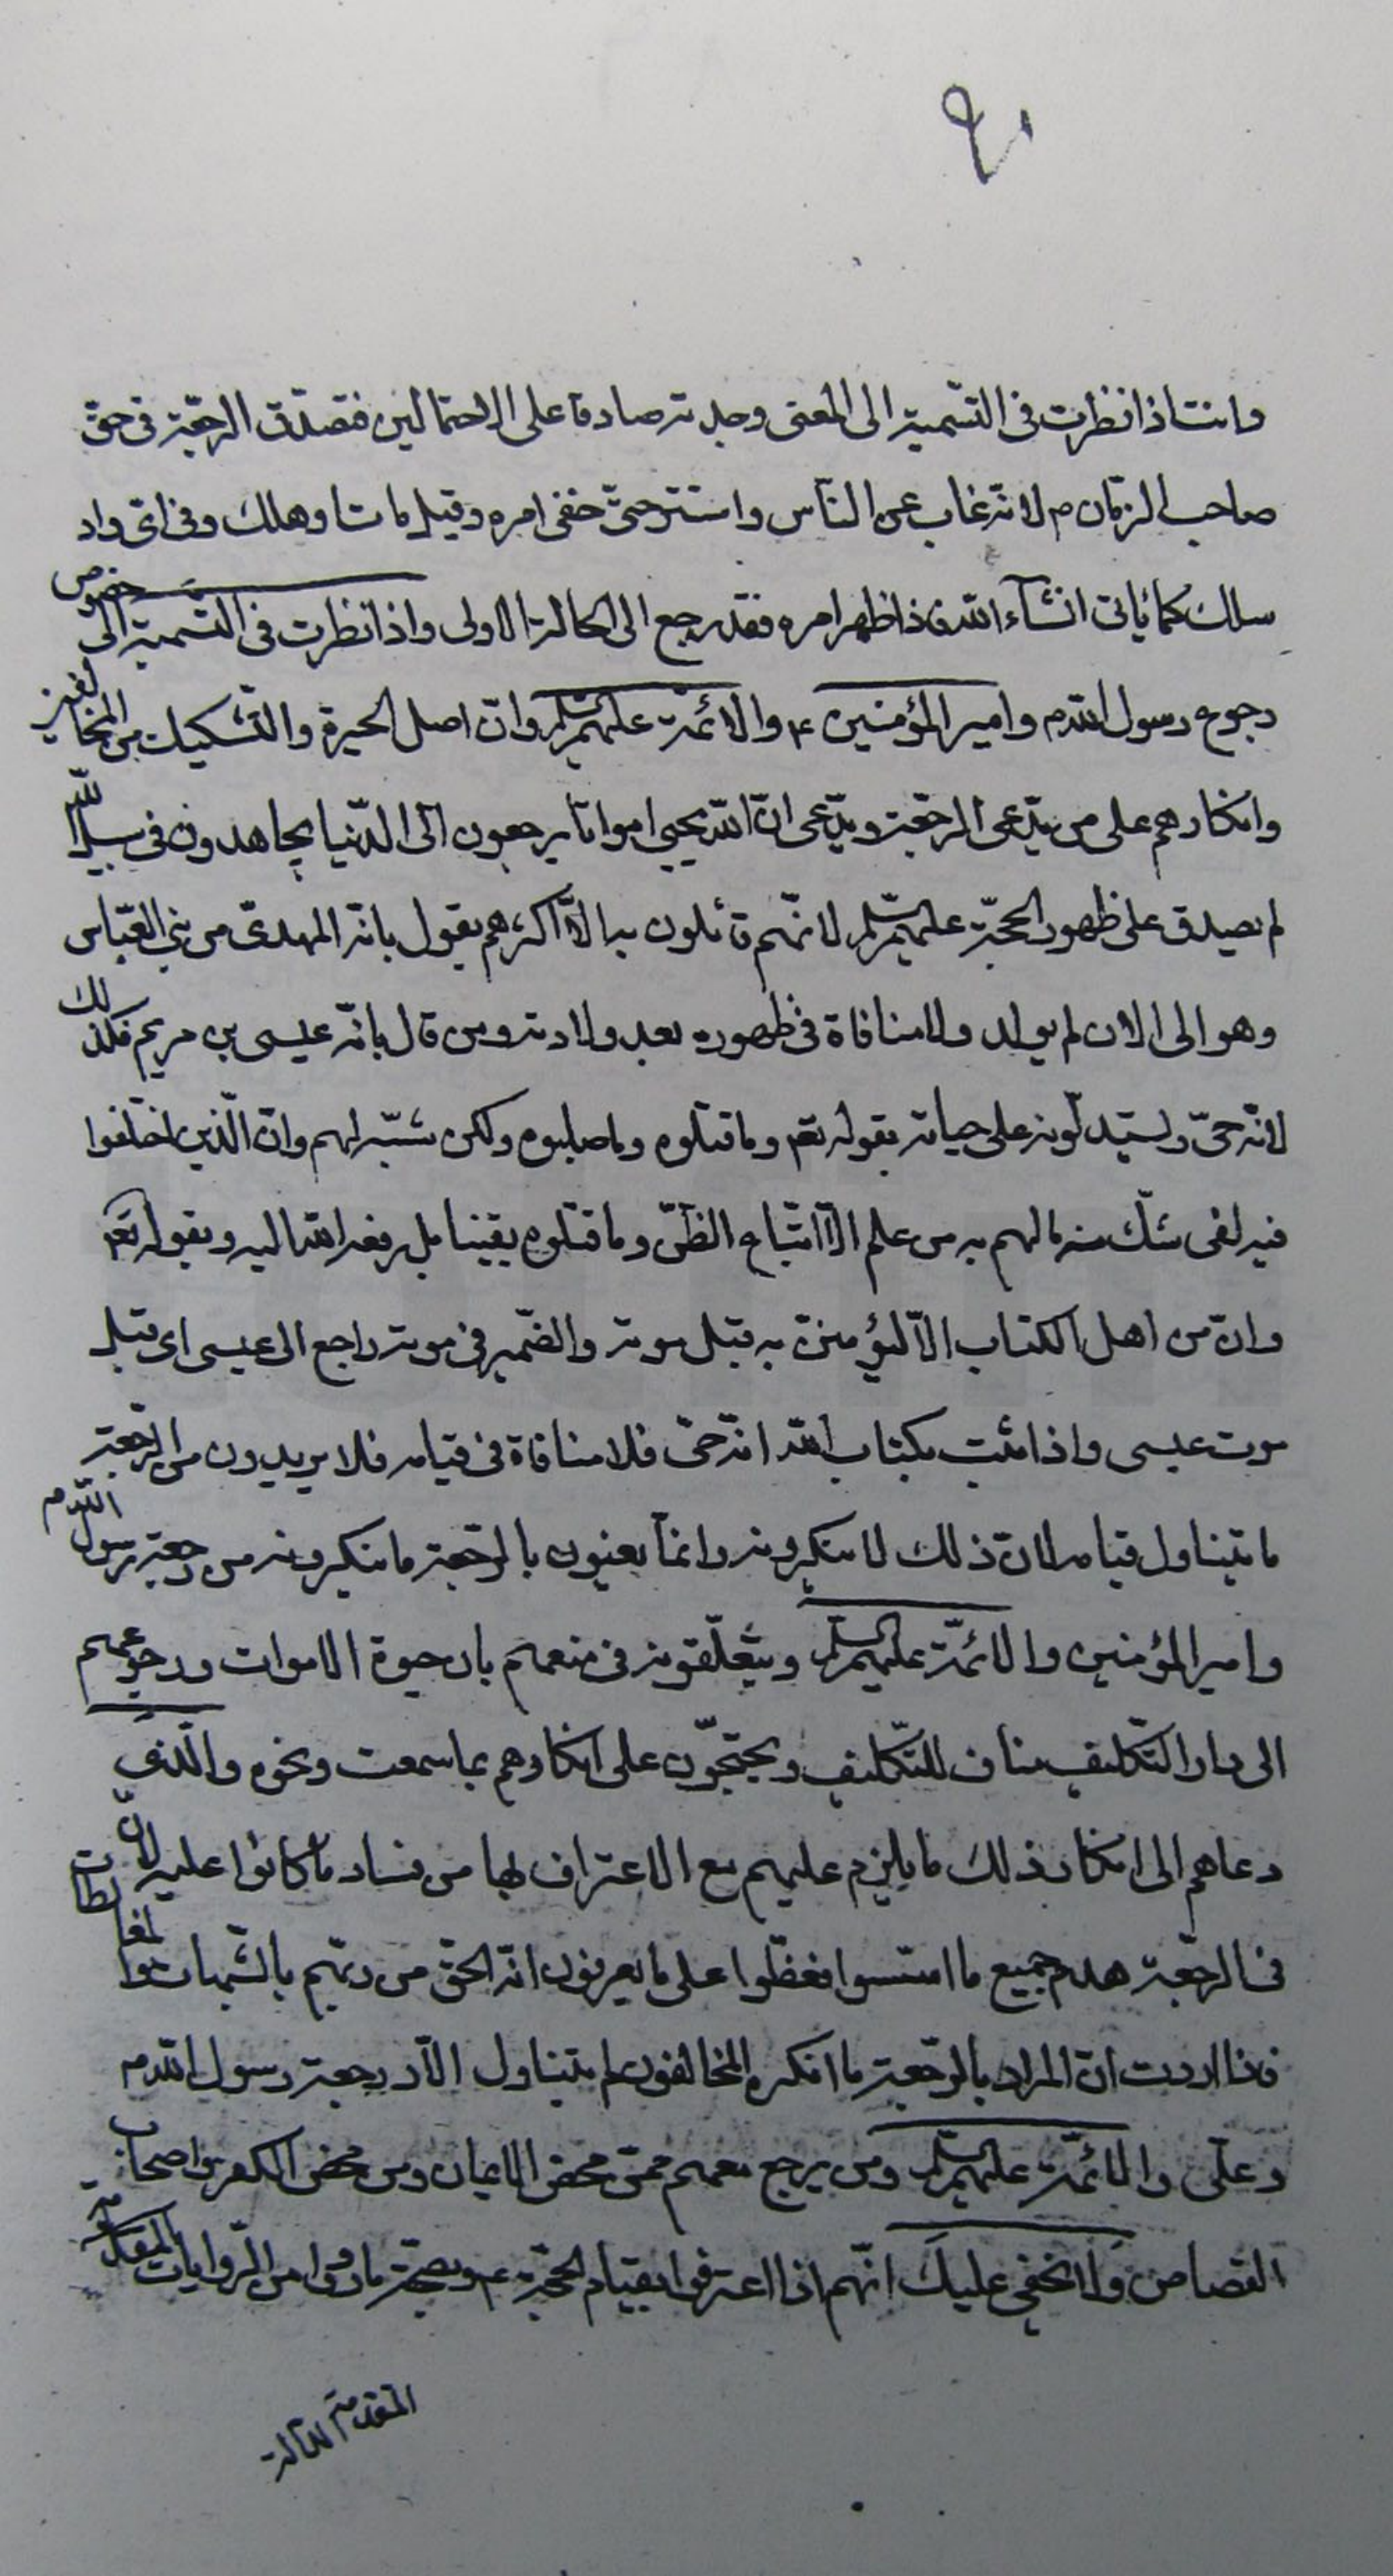 ٩١
وانت اذا نظرت فى التسمية الى المعنى وجدته صادقا على الاحتمالين فتصدق الرجعة فى حق
صاحب الزمان م لانه غاب عن الناس واستتر حتى خفى امره وقيل مات او هلك وفى اى واد
سلك كما ياتى انشاء الله فاذا ظهر امره فقد رجع الى الحالة الاولى واذا نظرت فى التسمية الى خصوص
رجوع رسول الله م وامير المؤمنين ع والائمة عليهم السلم وان اصل الحيرة والتشكيك من المخالفين
وانكارهم على من يدعى الرجعة ويدعى ان الله يحيى امواتا يرجعون الى الدنيا يجاهدون فى سبيل الله
لم يصدق على ظهور الحجة عليهم السلم لانهم قائلون به الا ان اكثرهم يقول بانه المهدى من بنى العباس
وهو الى الان لم يولد ولا منافاة فى ظهوره بعد ولادته ومن قال بانه عيسى بن مريم فكذلك
لانه حى ويستدلون على حياته بقوله تعم وما قتلوه وما صلبوه ولكن شبه لهم وان الذين اختلفوا
فيه لفى شك منه مالهم به من علم الا اتباع الظن وما قتلوه يقينا بل رفعه الله اليه وبقوله تعم
وان من اهل الكتاب الا ليؤمنن به قبل موته والضمير فى موته راجع الى عيسى اى قبل
موت عيسى واذا ثبت بكتاب الله انه حى فلا منافاة فى قيامه فلا يريدون من الرجعة
ما يتناول قيامه لان ذلك لا ينكرونه وانما يعنون بالرجعة ما ينكرونه من رجعة رسول الله م
وامير المؤمنين والائمة عليهم السلم ويتعلقون فى منعهم بان حيوة الاموات ورجوعهم
الى دار التكليف مناف للتكليف ويحتجون على انكارهم بما سمعت ونحوه والذى
دعاهم الى انكار ذلك ما يلزم عليهم مع الاعتراف بها من فساد ما كانوا عليه لان
فى الرجعة هدم جميع ما اسسوا فغطوا على ما يعرفون انه الحق من ربهم بالشبهات والمغالطات
فاذا اردت ان المراد بالرجعة ما انكره المخالفون لم يتناول الا رجعة رسول الله م
وعلى والائمة عليهم السلم ومن يرجع معهم ممن محض الايمان ومن محض الكفر من اصحاب
القصاص ولا يخفى عليك انهم اذا اعترفوا بقيام الحجة ع وبصحة ما رووا من الروايات المتقدمة
المقدمة الثالثة